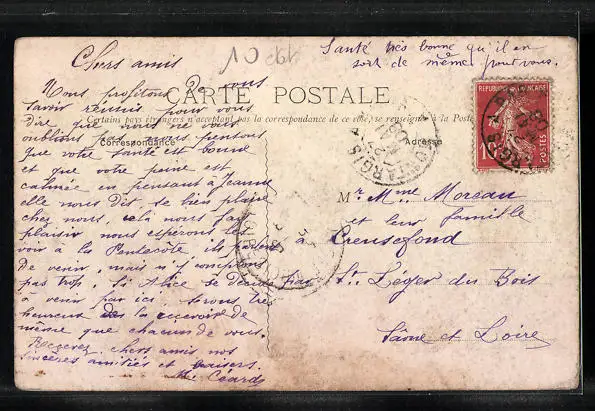 Santé très bonne qu'il en
soit de même pour vous.
10 c 199
Chers amis
Nous profitons de vous
savoir réunis pour vous
dire que nous ne vous
oublions pas nous pensons
que votre santé est bonne
et que votre peine est
calmée en pensant à Jeanne
elle nous dit se bien plaire
chez nous, cela nous fait
plaisir nous espérons les
voir à la Pentecôte ils parlent
de venir, mais n'y comptons
pas trop, Si Alice se décide
à venir par ici serons très
heureux de la recevoir de
même que chacun de vous.
Recevez chers amis nos
sincères amitiés et baisers.
CARTE POSTALE
Certains pays étrangers n'acceptant pas la correspondance de ce côté, se renseigner à la Poste
Correspondance
Adresse
REPUBLIQUE FRANÇAISE
10
POSTES
MONTARGIS
Mr Mme Moreau
et leur famille
à Creusefond
par St Leger du Bois
Saône et Loire